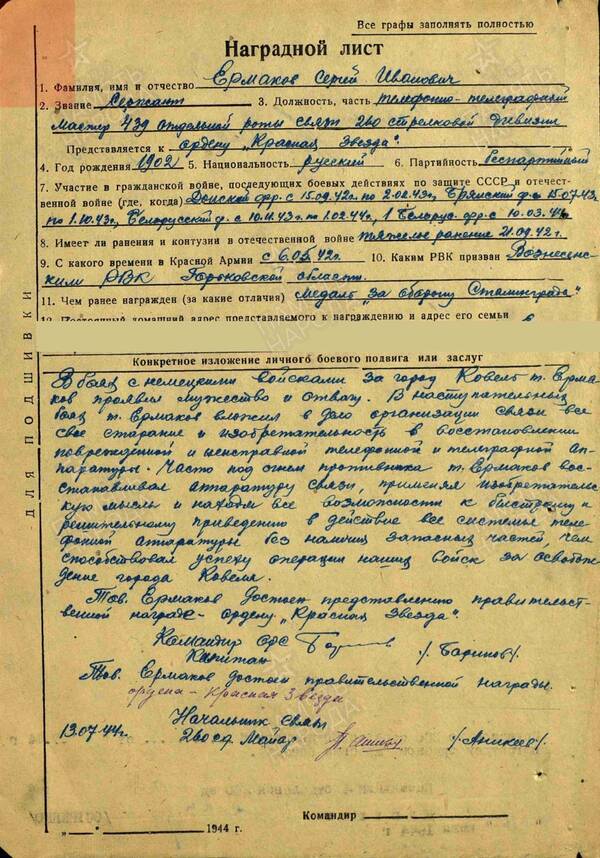 Все графы заполнять полностью
Наградной лист
1. Фамилия, имя и отчество Ермаков Сергей Иванович
2. Звание Сержант 3. Должность, часть телефонно-телеграфный
мастер 439 отдельной роты связи 260 стрелковой дивизии
Представляется к ордену „Красная Звезда".
4. Год рождения 1902 5. Национальность русский 6. Партийность беспартийный
7. Участие в гражданской войне, последующих боевых действиях по защите СССР и отечест-
венной войне (где, когда) Донской фр. с 15.09.42г. по 2.02.43г., Брянский ф. с 15.07.43
по 1.10.43г, Белорусский ф. с 10.11.43г. по 1.02.44г, 1 Белорус. фр. с 10.03.44г.
8. Имеет ли ранения и контузии в отечественной войне тяжелое ранение 21.09.42г.
9. С какого времени в Красной Армии с 6.05.42г. 10. Каким РВК призван Вознесенс-
ким РВК Горьковской области.
11. Чем ранее награжден (за какие отличия) Медаль „За оборону Сталинграда"
12. Постоянный домашний адрес представляемого к награждению и адрес его семьи
ДЛЯ ПОДШИВКИ
Конкретное изложение личного боевого подвига или заслуг
В боях с немецкими войсками за город Ковель т. Ерма-
ков проявил мужество и отвагу. В наступательных
боях т. Ермаков вложил в дело организации связи все
свое старание и изобретательность в восстановлении
поврежденной и неисправной телефонной и телеграфной ап-
паратуры. Часто под огнем противника т. Ермаков вос-
станавливал аппаратуру связи, применяя изобретательс-
кую мысль и находя все возможности к быстрому и
решительному приведению в действие все системы теле-
фонной аппаратуры без наличия запасных частей, чем
способствовал успеху операции наших войск за освобож-
дение города Ковеля.
Тов. Ермаков достоен представлению правительст-
венной награде - ордену „Красная Звезда".
Командир орс /Баринов/.
Капитан
Тов. Ермаков достоен правительственной награды
ордена - Красная Звезда
Начальник связи
13.07.44г. 260 сд Майор /Аникеев/.
Командир
„ " 1944 г.